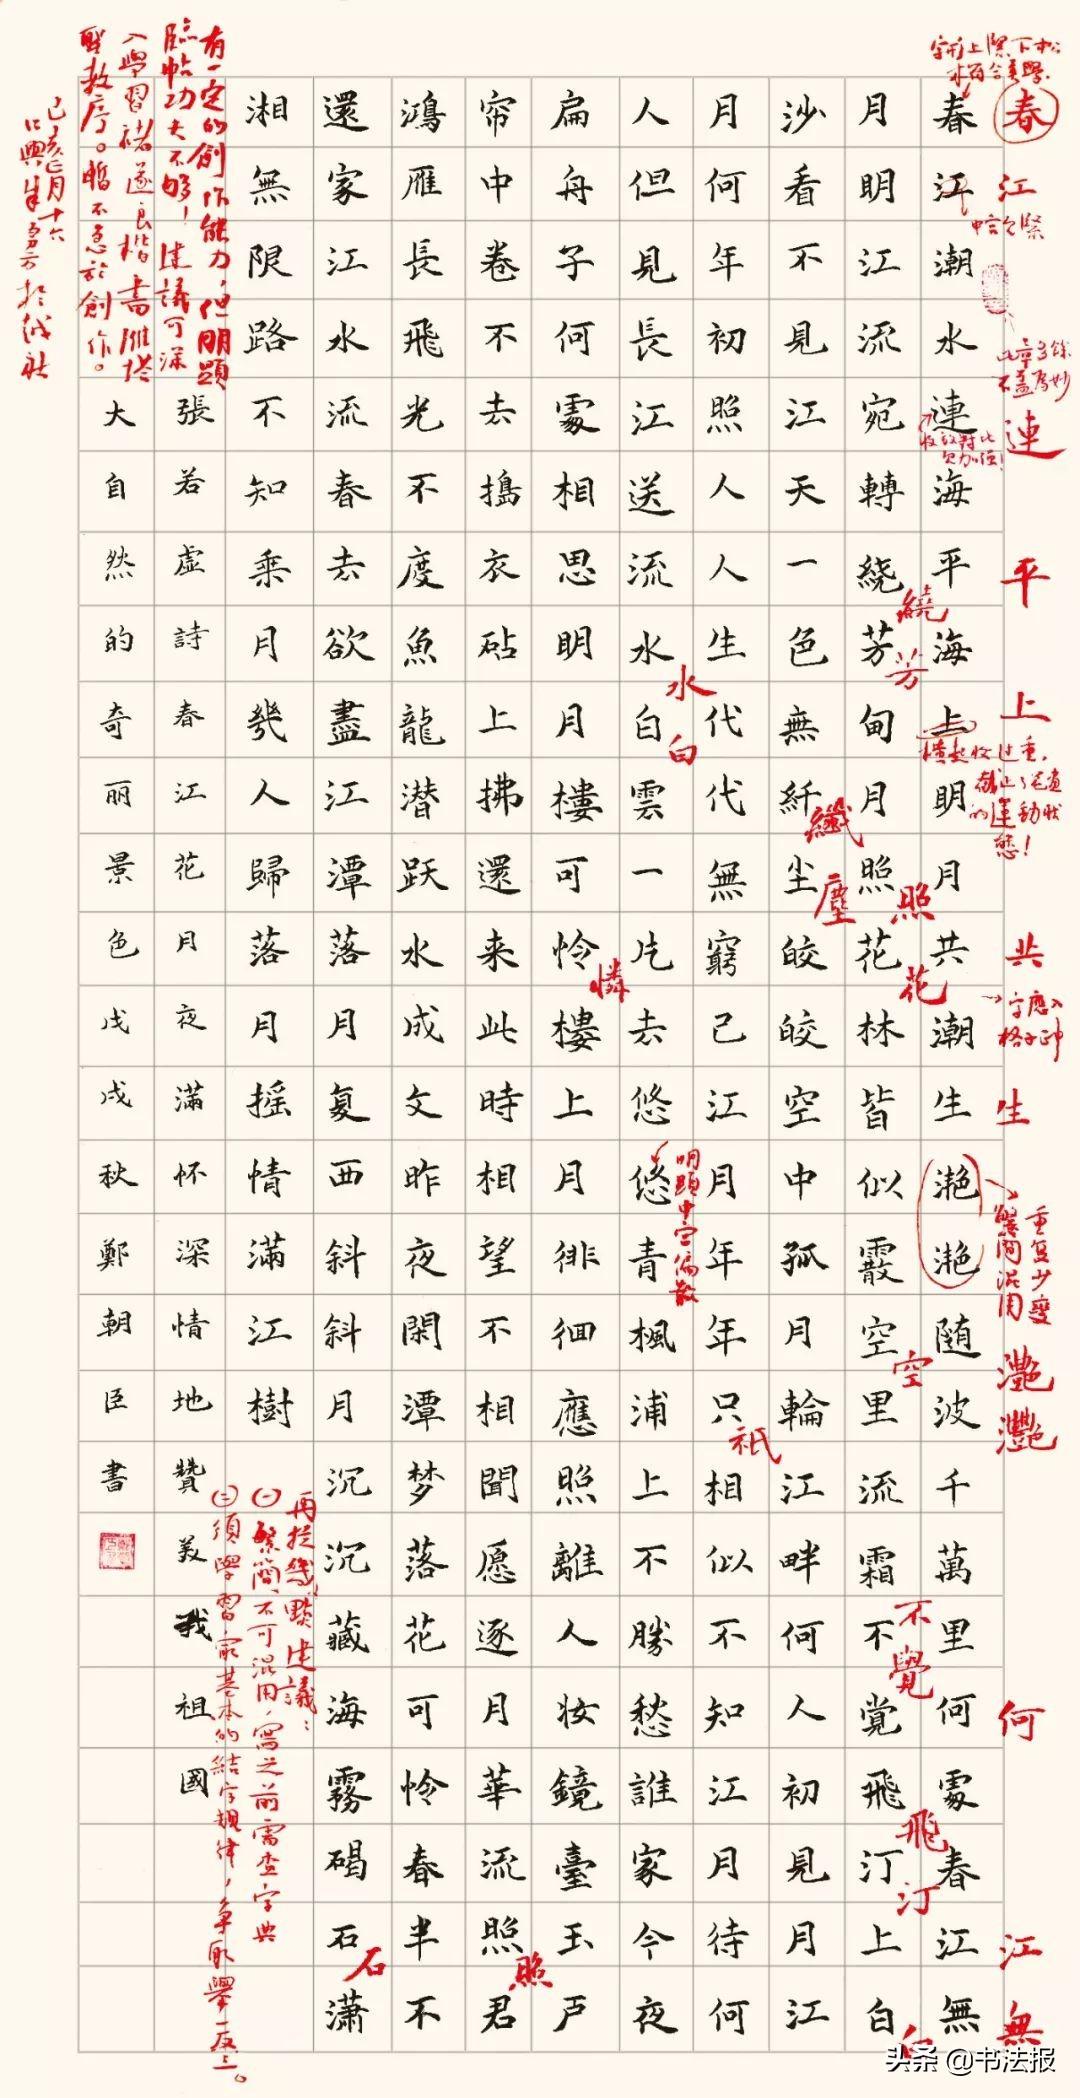 春江潮水連海平海上明月共潮生滟滟随波千萬里何處春江無
月明江流宛轉繞芳甸月照花林皆似霰空里流霜不覚飛汀上白
沙看不見江天一色無纤尘皎皎空中孤月輪江畔何人初見月江
月何年初照人人生代代無窮已江月年年只相似不知江月待何
人但見長江送流水白雲一片去悠悠青楓浦上不勝愁誰家今夜
扁舟子何處相思明月樓可怜樓上月徘徊應照離人妆鏡臺玉户
帘中卷不去搗衣砧上拂還来此時相望不相聞愿逐月華流照君
鴻雁長飛光不度魚龍潜跃水成文昨夜閑潭梦落花可怜春半不
還家江水流春去欲盡江潭落月复西斜斜月沉沉藏海霧碣石潇
湘無限路不知乘月幾人歸落月摇情滿江樹
張若虚詩春江花月夜滿怀深情地贊美我祖國
大自然的奇丽景色戊戌秋鄭朝臣書
字形上緊下松
春
江
中宫欠緊
不蓋為妙
連
收放對比
欠加强！
平
上
横起收过重，
截止了笔畫
的運動狀
態！
共
字應入
格子正中
生
重复少變
繁简混用
灔灔
何
江
無
繞
芳
照
花
空
不覺
飛
汀
白
纖
塵
祇
水
白
明顯中宫偏散
憐
照
石
有一定的創作能力，但明顯
臨帖功夫不够！建議可深
入學習褚遂良楷書雁塔
聖教序。暫不急於創作。
己亥正月十六
再提幾點建議：
㈠繁简不可混用，寫之前需查字典
㈡須學習最基本的結字規律，争取舉一反三。
头条 @书法报